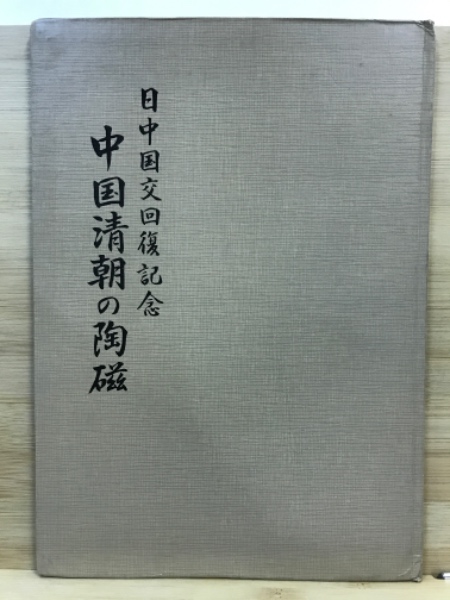 日中国交回復記念
中国清朝の陶磁